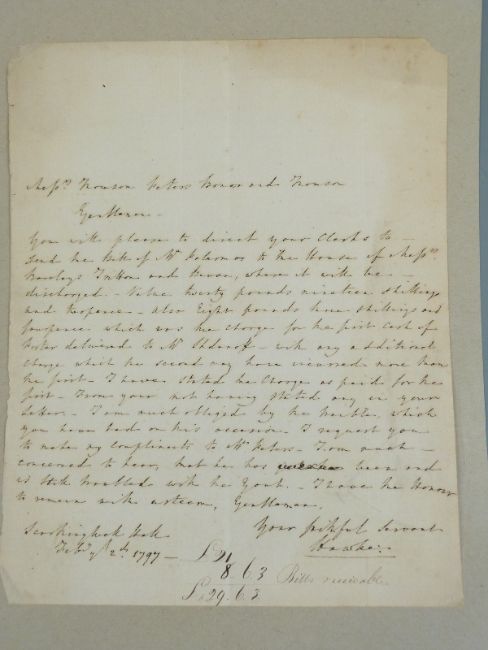 Mess.rs Thomson Peters Bonar and Thomson
Gentlemen
You will please to direct your Clerks to
send the Bill of Mr to the House of Mess.rs
Barclays Tritton and Bevan, where it will be
discharged - twenty pounds nineteen shillings
and twopence - also Eight pounds three shillings and
fourpence which was the Charge for the first Cask of
Porter delivered to Mr - with any additional
Charge which the second may have incurred more than
the first - I have stated the Charge as paid for the
first - From your not having stated any in your
letter - I am much obliged by the trouble, which
you have had on this occasion. I request you
to make my Compliments to Mr Peters - I am much
concerned to hear, that he has been and
is still troubled with the Gout. - I have the Honour
to remain with esteem, Gentlemen
Your faithful Servant
Hawke
Scarthingwell Hall
Feb.y 2d. 1797 - £21
8.6.3 Bills receivable
£29.6.3